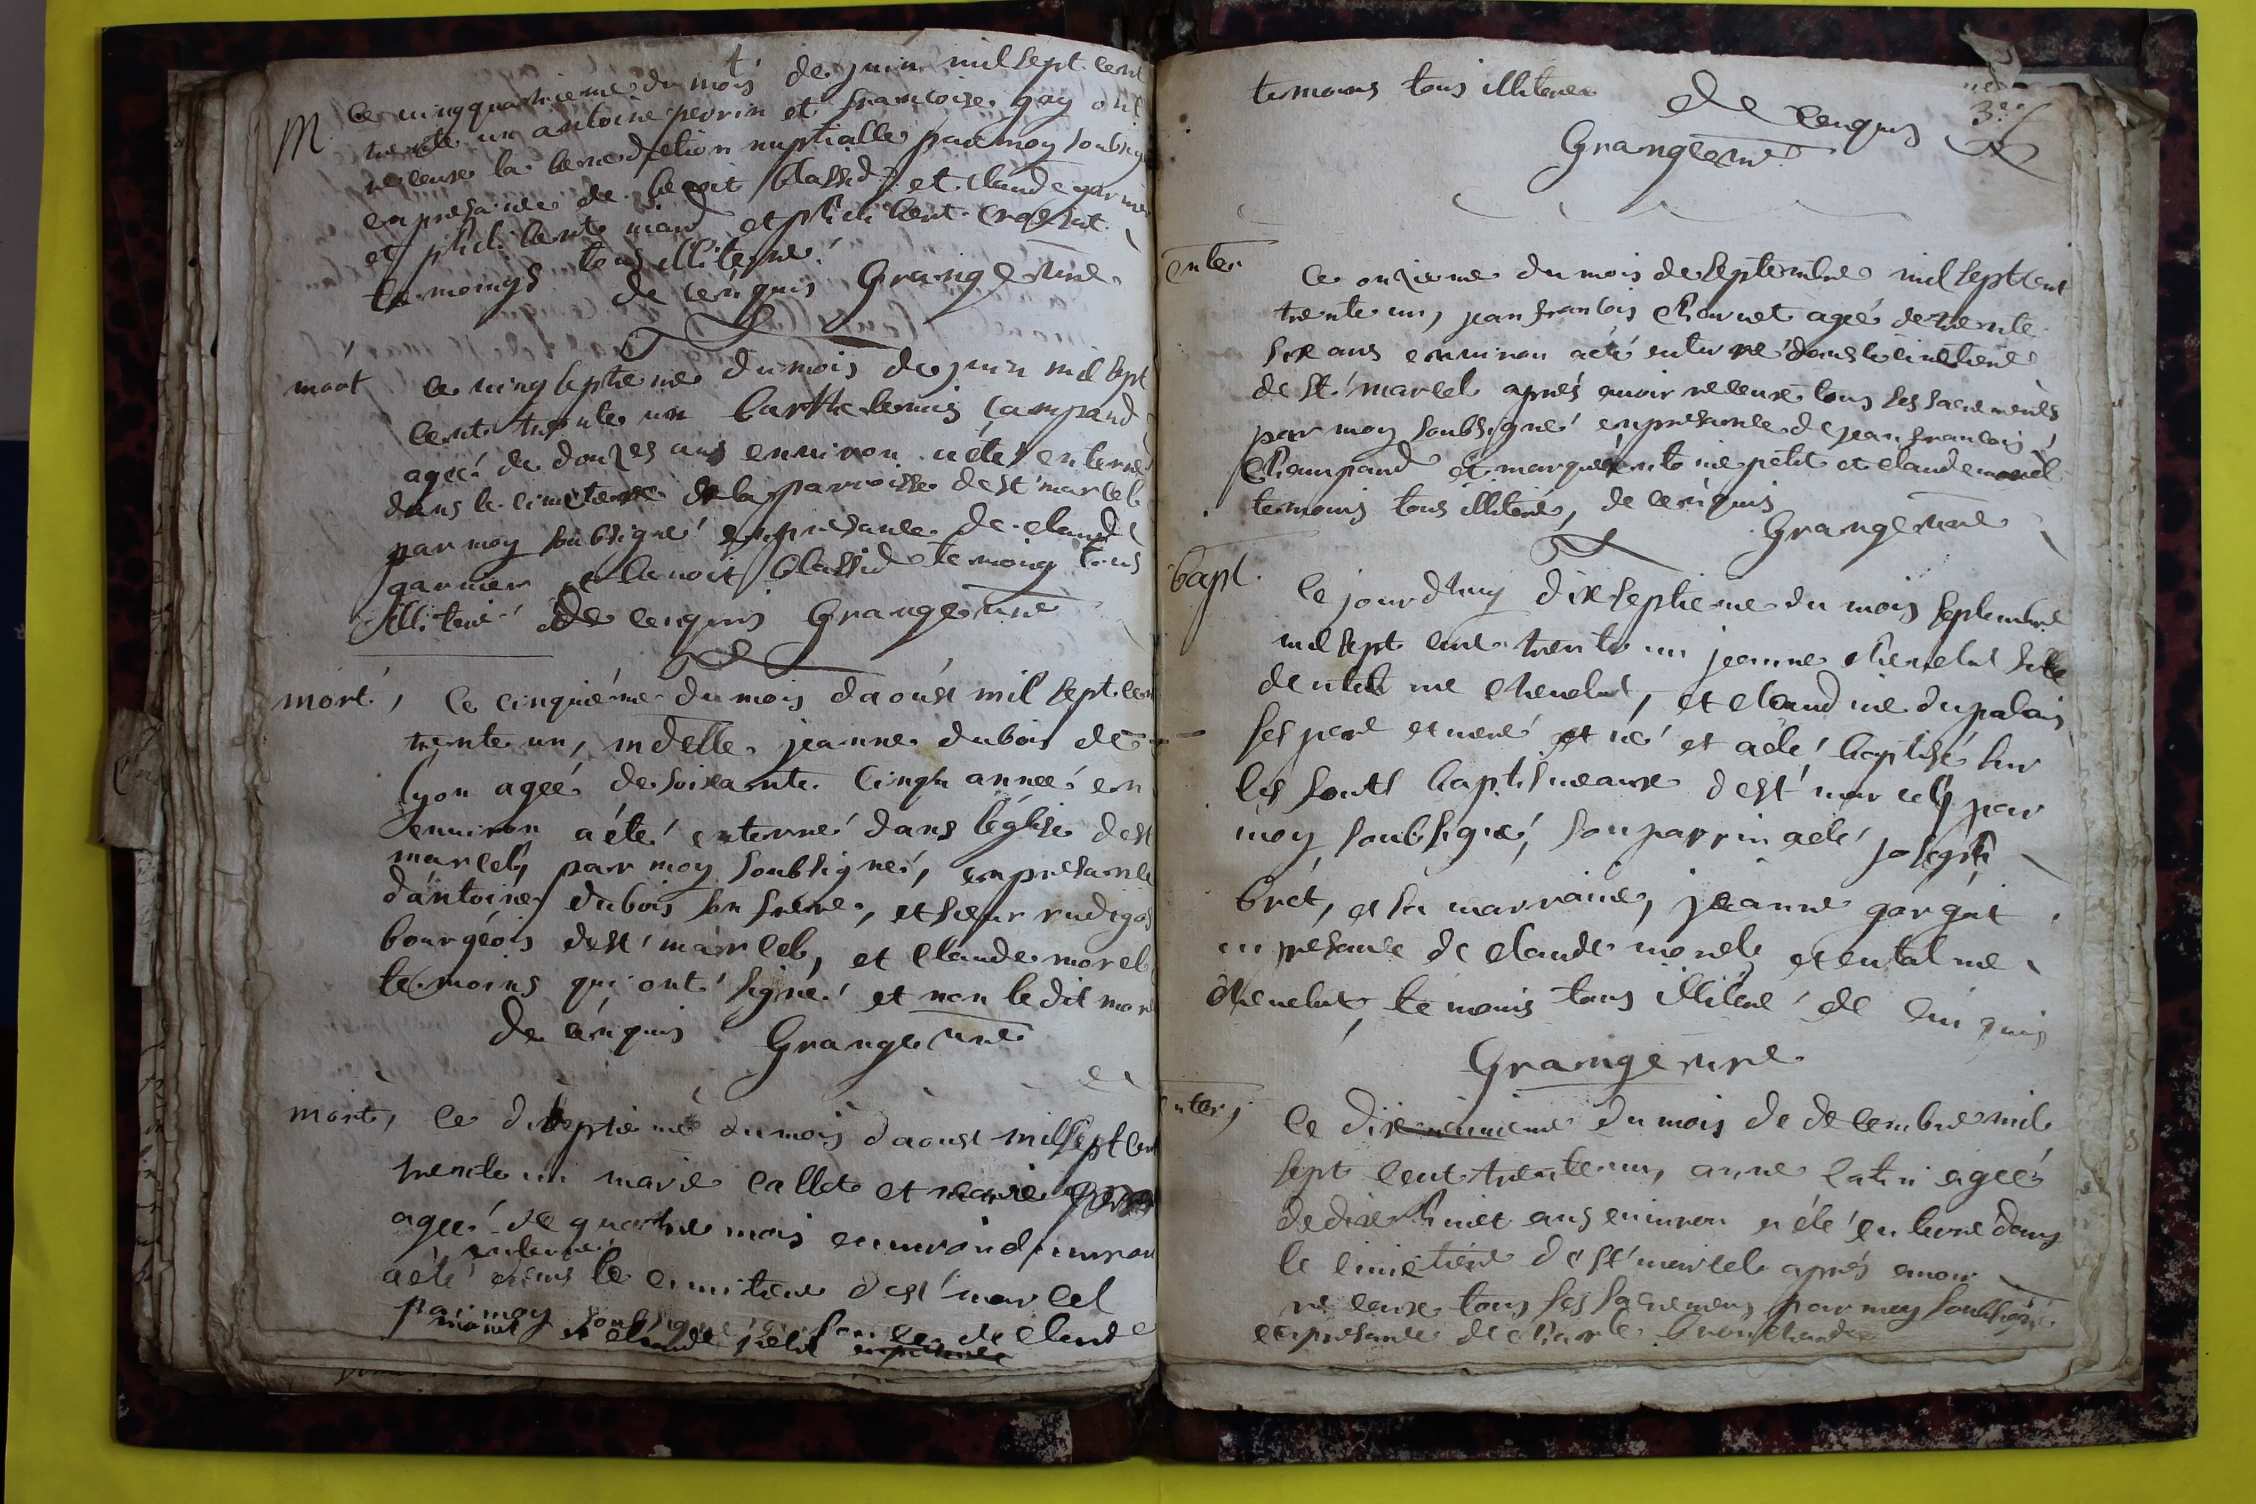 M
ce vingquatrieme du mois de juin mil sept cent
trente un antoine perrin et francoise gay ont
receuse la benediction nuptialle par moy soubsigne
en presance de benoit blassid et claude garnier
et philibert et philibert crozat
temoings tous illiteré
de cenquis Grange curé
mort
ce ving septieme du mois de juin mil sept
cent trente un barthelemis campand
ageé de douzes ans environ a été enterré
dans le cimetiere de la parroisse de st marcel
par moy soubsigné en presance de claude
garnier et benoit blassid temoing tous
illiteré de cenquis Grange curé
mort,
ce cinquiéme du mois d'aoust mil sept cent
trente un, mdelle jeanne dubois de
lyon ageé de soixante cinq anneé en
environ a été enterré dans l'église de st
marcel, par moy soubsigneé, en presance
d'antoine dubois son frere, et sieur rudigos
bourgéois de st marcel, et claude morel
temoins qui ont signé et non le dit morel
de cenquis Grange curé
mort,
ce dixseptiemé du mois d'aoust mil sept cent
trente un marie callet et
ageé de quattre mois environ
enterré
a été dans le cimitiere de st marcel
par moy soubsigné de claude
et claude petit
temoins tous illiteré de cenquis
Grange curé
enter
ce onzieme du mois de septembre mil sept cent
trente un, jean francois charvet ageé de trente
six ans environ a été enterré dans le cimetiere
de st marcel aprés avoir receuse tous ses sacrements
par moy soubsigné en presance de jean francois
champand et petit et claude morel
temoins tous illiteré, de cenquis
Grange curé
bapt.
ce jourdhuy dixseptieme du mois septembre
mil sept cent trente un jeanne chenelut fille
de chenelut, et claudine dupalais
ses pere et mere et né et a été baptisé sur
les fonts baptismeaux de st marcel par
moy, soubsigné, son parrin a été joseph
bret, et sa marraine, jeanne gorgat
en presance de claude morel, et
chenelut, temoins tous illiteré de cenquis
Grange curé
enter,
ce dixneuvieme du mois de decembre mil
sept cent trente un, anne catin ageé
de dixhuiet ans environ a été enterré dans
le cimetiére de st marcel aprés avoir
receuse tous ses sacremens par moy soubsigné
en presance de